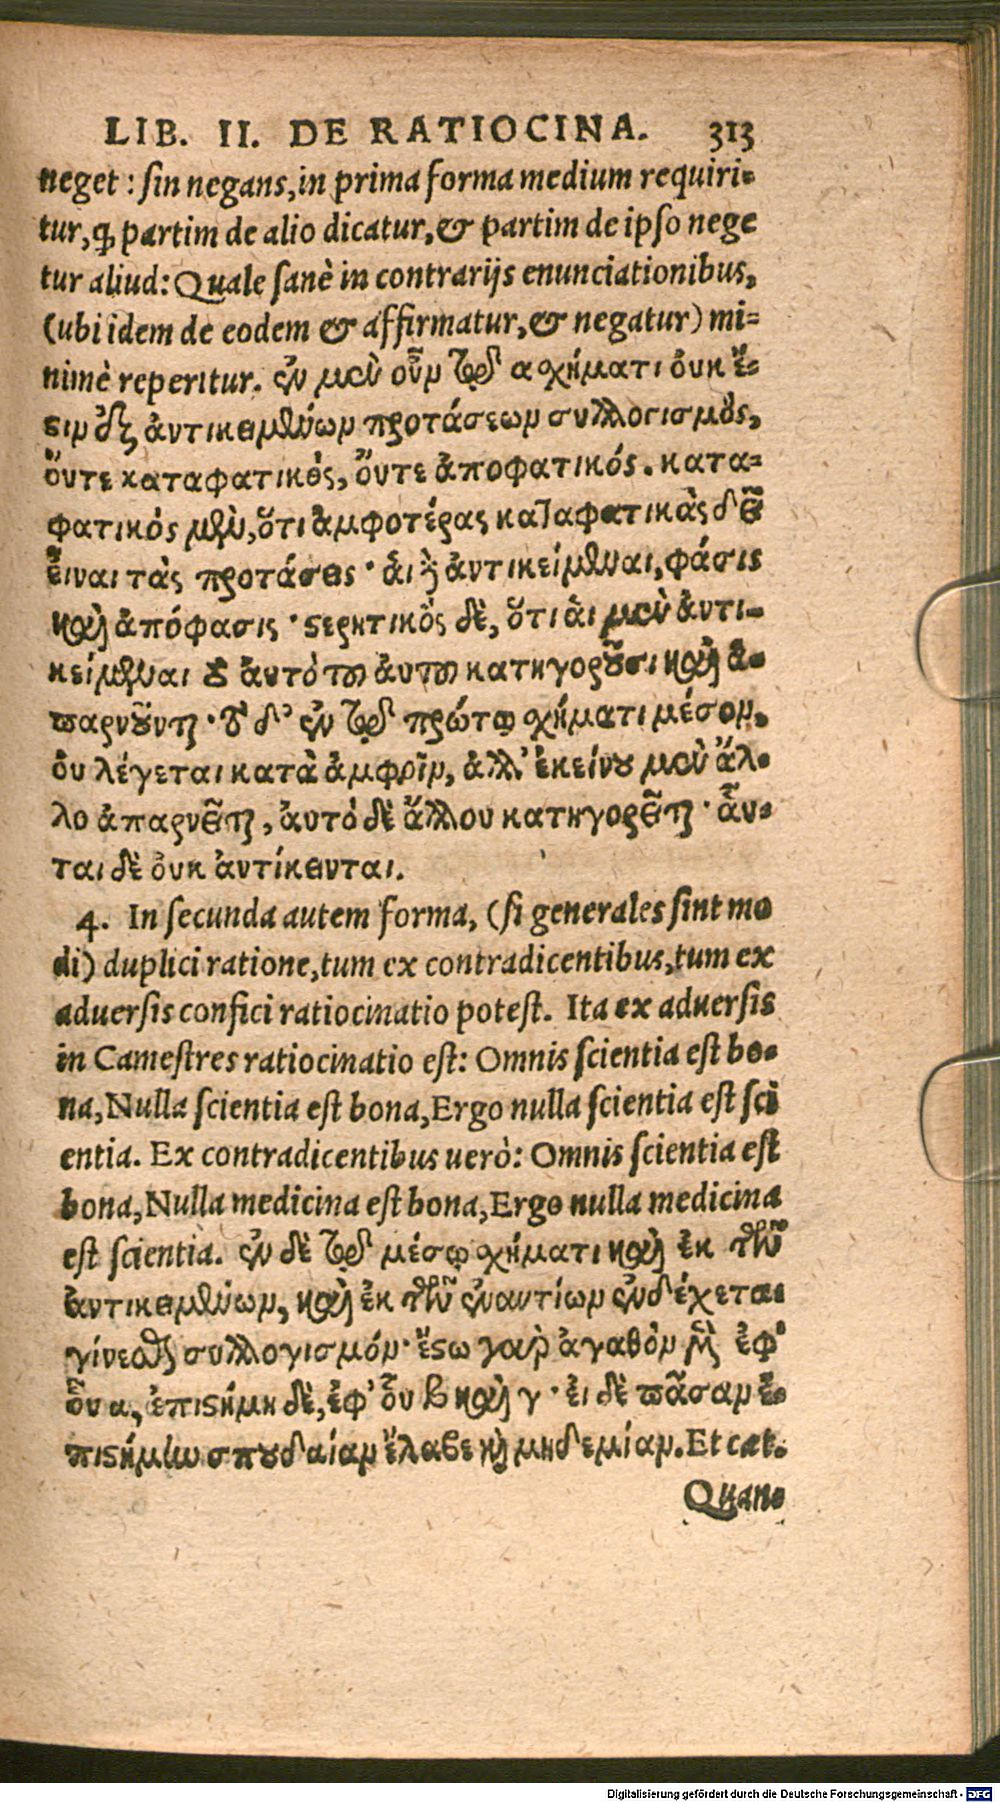 LIB. II. DE RATIOCINA. 313
neget : ſin negans, in prima forma medium requiri-
tur, q̃ partim de alio dicatur, & partim de ipſo nege
tur aliud: Quale ſanè in contrarijs enunciationibus,
(ubi idem de eodem & affirmatur, & negatur) mi-
nimè reperitur. ἐν μὲν οὖν τῷ α σχήματι ὀυκ ἔ-
ϛιν ἐξ ἀντικειμένων προτάσεων συλλογισμός,
ὄυτε καταφατικὸς, ὄυτε ἀποφατικός. κατα-
φατικός μὲν, ὅτι ἀμφοτέρας καταφατικὰς δεῖ
εἶιναι τὰς προτάσεις · ἁι δὲ ἀντικείμεναι, φάσις
καὶ ἀπόφασις · ϛερητικὸς δὲ, ὅτι ἁι μὲν ἀντι-
κείμεναι τὸ ἀυτὸ τοῦ ἀυτοῦ κατηγοροῦσι καὶ ἀ-
παρνοῦνται · τὸ δ’ ἐν τῷ πρώτῳ σχήματι μέσον,
ὀυ λέγεται κατὰ ἀμφοῖν, ἀλλ’ ἐκείνου μὲν ἄλ-
λο ἀπαρνεῖται, ἀυτὸ δὲ ἄλλου κατηγορεῖται · ἇυ-
ται δὲ ὀυκ ἀντίκεινται.
4. In ſecunda autem forma, (ſi generales ſint mo
di) duplici ratione, tum ex contradicentibus, tum ex
aduerſis confici ratiocinatio poteſt. Ita ex aduerſis
in Cameſtres ratiocinatio eſt: Omnis ſcientia eſt bo-
na, Nulla ſcientia eſt bona, Ergo nulla ſcientia eſt ſci
entia. Ex contradicentibus uerò: Omnis ſcientia eſt
bona, Nulla medicina eſt bona, Ergo nulla medicina
eſt ſcientia. ἐν δὲ τῷ μέσῳ σχήματι καὶ ἐκ τῶν
ἀντικειμένων, καὶ ἐκ τῶν ἐναντίων ἐνδέχεται
γίνεσθαι συλλογισμόν · ἔϛω γαρ ἀγαθὸν μὲν ἐφ’
οὗ α, ἐπιϛήμη δὲ, ἐφ’ οὗ β καὶ γ · ἐι δὲ πᾶσαν ἐ-
πιϛήμην σπουδαίαν ἔλαβε καὶ μηδεμίαν. Et cæt.
Quan-
Digitalisierung gefördert durch die Deutsche Forschungsgemeinschaft - DFG